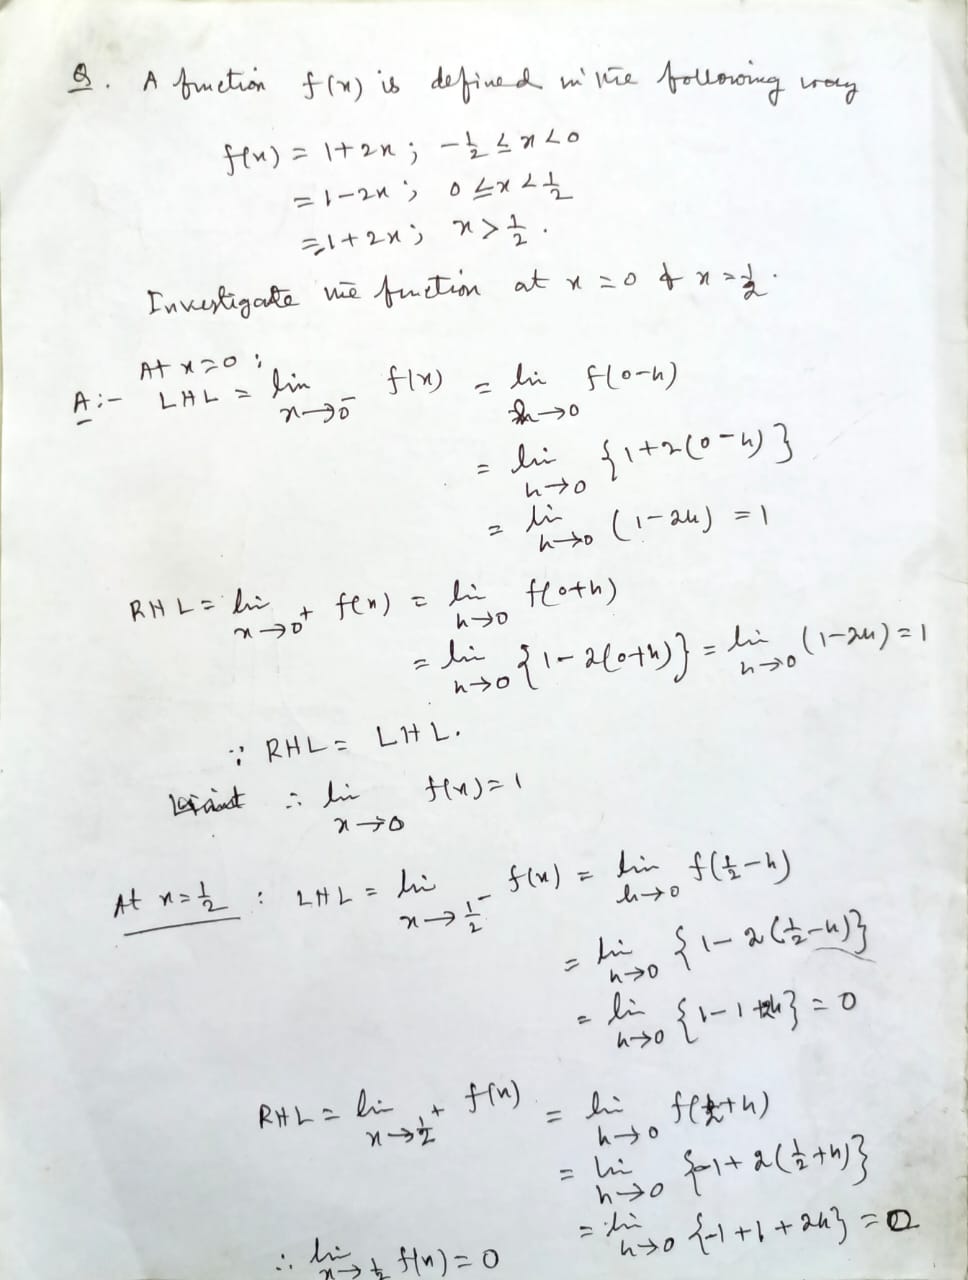 Q. A function f(x) is defined in the following way
f(x) = 1+2x ; -1/2 ≤ x < 0
= 1-2x ; 0 ≤ x < 1/2
= 1+2x ; x > 1/2 .
Investigate the function at x = 0 & x = 1/2 .
At x = 0 ;
A:- LHL = lim x→0⁻ f(x) = lim h→0 f(0-h)
= lim h→0 {1+2(0-h)}
= lim h→0 (1-2h) = 1
RHL = lim x→0⁺ f(x) = lim h→0 f(0+h)
= lim h→0 {1-2(0+h)} = lim h→0 (1-2h) = 1
∵ RHL = LHL.
∴ lim x→0 f(x) = 1
At x = 1/2 : LHL = lim x→1/2⁻ f(x) = lim h→0 f(1/2-h)
= lim h→0 {1-2(1/2-h)}
= lim h→0 {1-1+2h} = 0
RHL = lim x→1/2⁺ f(x) = lim h→0 f(1/2+h)
= lim h→0 {-1+2(1/2+h)}
= lim h→0 {-1+1+2h} = 0
∴ lim x→1/2 f(x) = 0